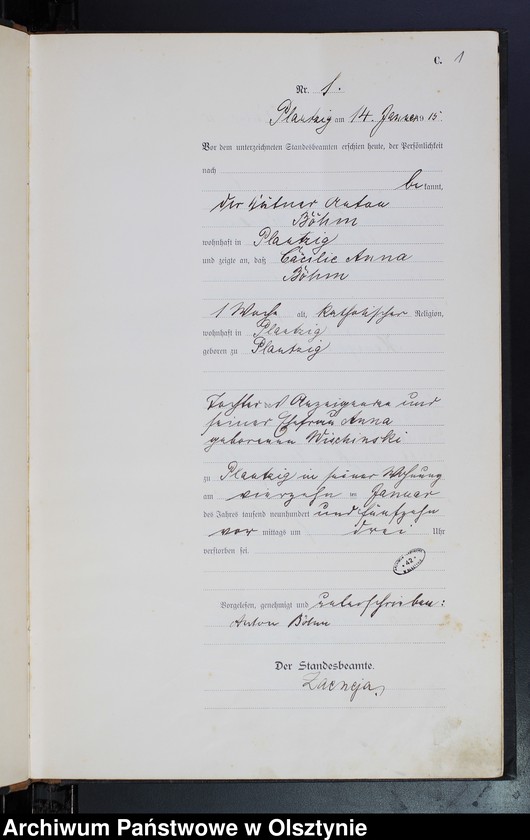 C. 1
Nr. 1.
Plautzig am 14. Januar 1915.
Vor dem unterzeichneten Standesbeamten erschien heute, der Persönlichkeit
nach
bekannt,
der Kätner Anton
Böhm
wohnhaft in Plautzig
und zeigte an, daß Cäcilie Anna
Böhm
1 Woche alt, katholischer Religion,
wohnhaft in Plautzig
geboren zu Plautzig
Tochter des Anzeigenden und
seiner Ehefrau Anna
geborenen Wischinski
zu Plautzig in seiner Wohnung
am vierzehn ten Januar
des Jahres tausend neunhundert und fünfzehn
vor mittags um drei Uhr
verstorben sei.
42
Vorgelesen, genehmigt und unterschrieben:
Anton Böhm
Der Standesbeamte.
Archiwum Państwowe w Olsztynie